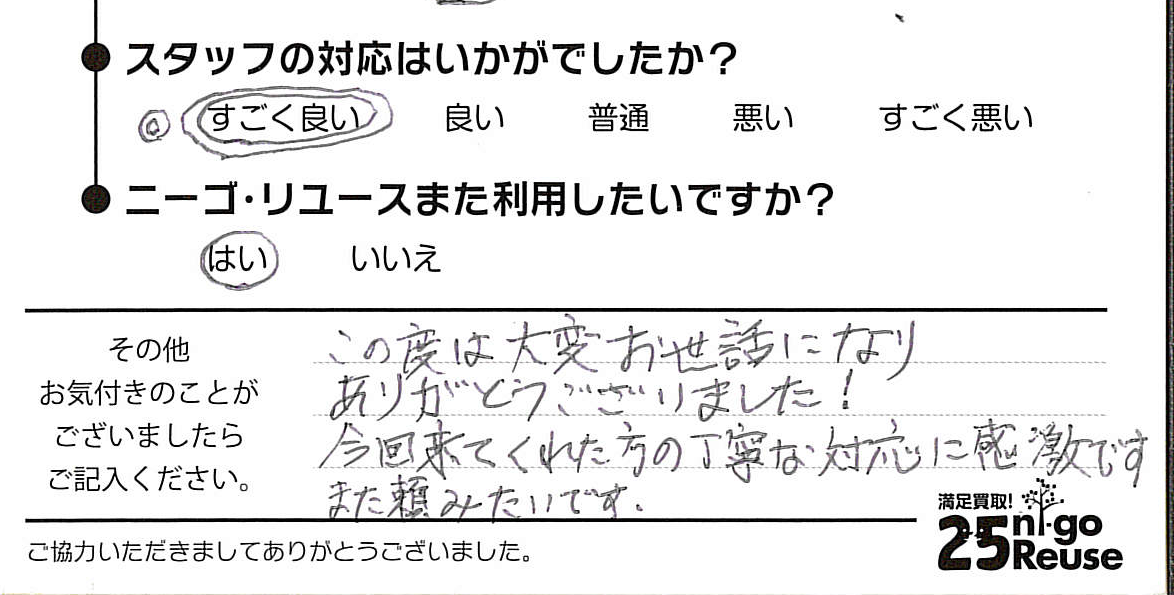 ● スタッフの対応はいかがでしたか？
◎ すごく良い 良い 普通 悪い すごく悪い
● ニーゴ・リユースまた利用したいですか？
はい いいえ
その他
お気付きのことが
ございましたら
ご記入ください。
この度は大変お世話になり
ありがとうございました！
今回来てくれた方の丁寧な対応に感激です
また頼みたいです.
満足買取！
25 ni-go
Reuse
ご協力いただきましてありがとうございました。